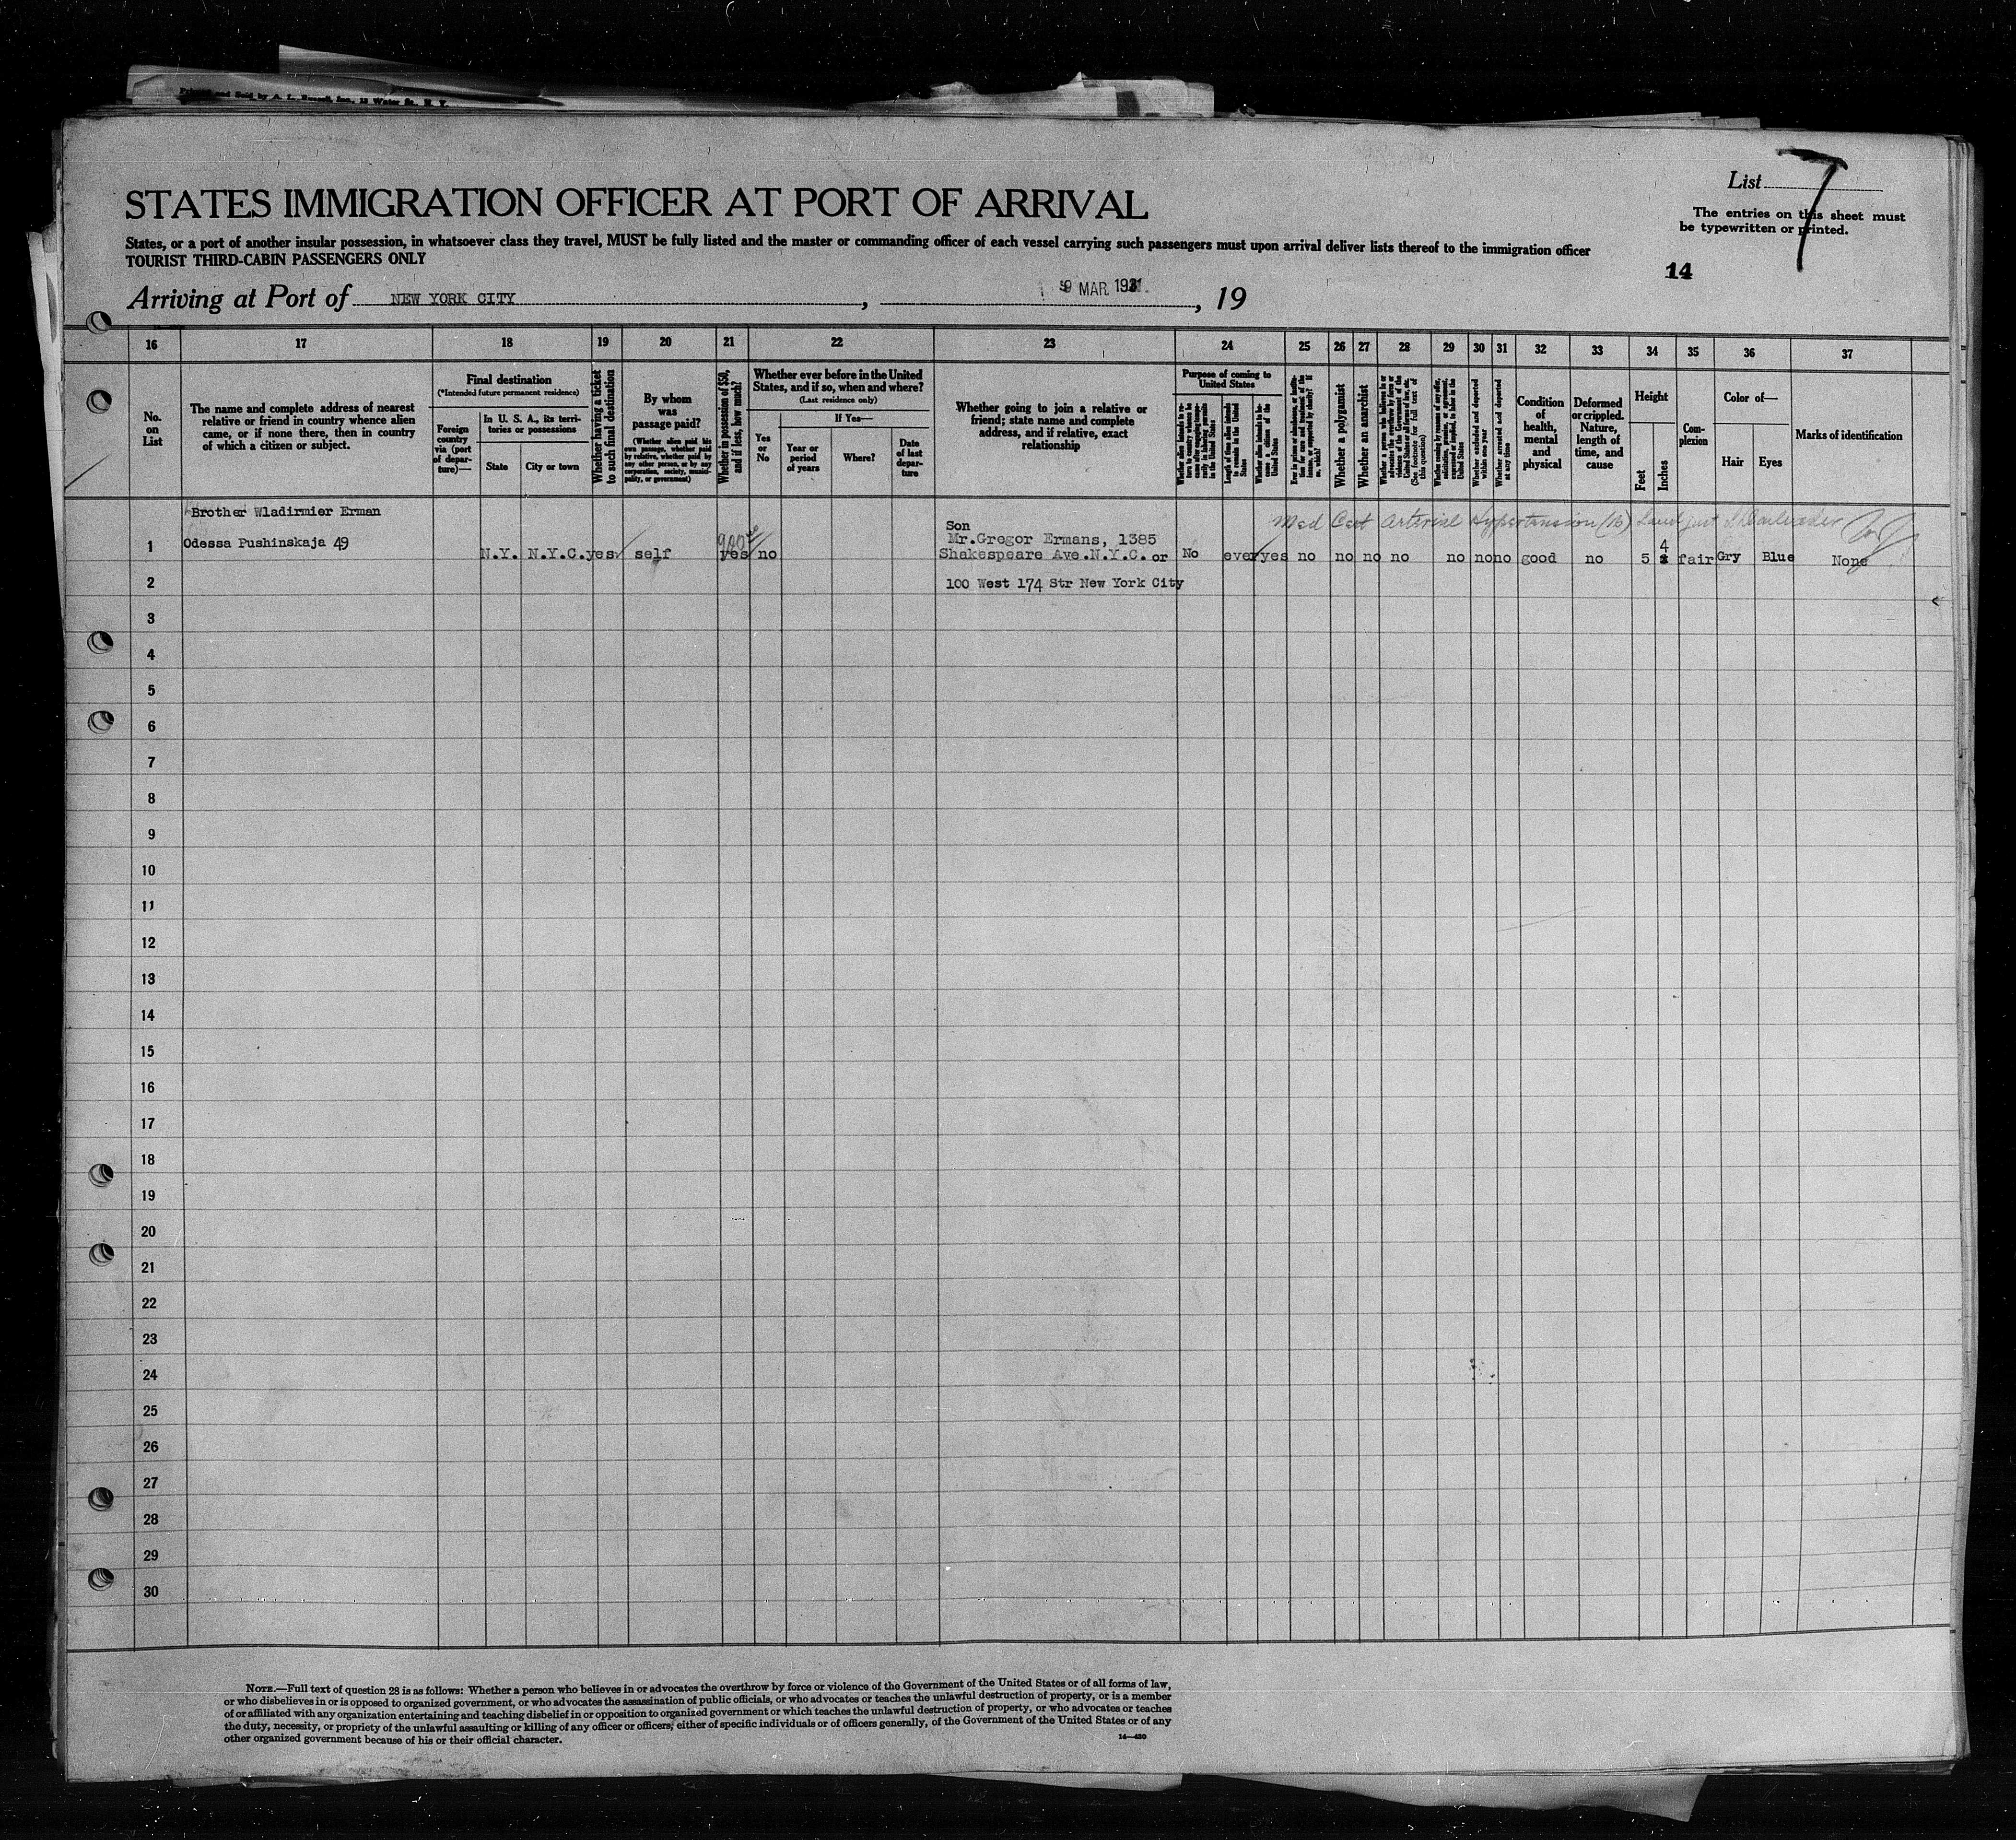 Printed and Sold by A. L. Russell, Inc., 12 Water St., N. Y.
STATES IMMIGRATION OFFICER AT PORT OF ARRIVAL
List 7
The entries on this sheet must
be typewritten or printed.
States, or a port of another insular possession, in whatsoever class they travel, MUST be fully listed and the master or commanding officer of each vessel carrying such passengers must upon arrival deliver lists thereof to the immigration officer
TOURIST THIRD-CABIN PASSENGERS ONLY
14
Arriving at Port of NEW YORK CITY, 9 MAR 1931, 19
16 17 18 19 20 21 22 23 24 25 26 27 28 29 30 31 32 33 34 35 36 37
No.
on
List
The name and complete address of nearest
relative or friend in country whence alien
came, or if none there, then in country
of which a citizen or subject.
Final destination
(*Intended future permanent residence)
Foreign
country
via (port
of depar-
ture)—
In U. S. A., its terri-
tories or possessions
State
City or town
Whether having a ticket
to such final destination
By whom
was
passage paid?
(Whether alien paid his
own passage, whether paid
by relative, whether paid by
any other person, or by any
corporation, society, munici-
pality, or government)
Whether in possession of $50,
and if less, how much?
Whether ever before in the United
States, and if so, when and where?
(Last residence only)
Yes
or
No
If Yes—
Year or
period
of years
Where?
Date
of last
depar-
ture
Whether going to join a relative or
friend; state name and complete
address, and if relative, exact
relationship
Purpose of coming to
United States
Length of time alien intends
to remain in the United
States
Whether alien intends to be-
come a citizen of the
United States
Whether a polygamist
Whether an anarchist
(See footnote for full text of
this question)
Whether excluded and deported
within one year
Whether arrested and deported
at any time
Condition
of
health,
mental
and
physical
Deformed
or crippled.
Nature,
length of
time, and
cause
Height
Feet
Inches
Com-
plexion
Color of—
Hair
Eyes
Marks of identification
Brother Wladirmier Erman
Son
Med Cert Arterial Hypertension (16)
1 Odessa Pushinskaja 49
900
Mr.Gregor Ermans, 1385
4
N.Y. N.Y.C. yes self yes no Shakespeare Ave.N.Y.C. or No ever yes no no no no no no no good no 5 fair Gry Blue None
2 100 West 174 Str New York City
3
4
5
6
7
8
9
10
11
12
13
14
15
16
17
18
19
20
21
22
23
24
25
26
27
28
29
30
NOTE.—Full text of question 28 is as follows: Whether a person who believes in or advocates the overthrow by force or violence of the Government of the United States or of all forms of law,
or who disbelieves in or is opposed to organized government, or who advocates the assassination of public officials, or who advocates or teaches the unlawful destruction of property, or is a member
of or affiliated with any organization entertaining and teaching disbelief in or opposition to organized government or which teaches the unlawful destruction of property, or who advocates or teaches
the duty, necessity, or propriety of the unlawful assaulting or killing of any officer or officers, either of specific individuals or of officers generally, of the Government of the United States or of any
other organized government because of his or their official character.
14—430